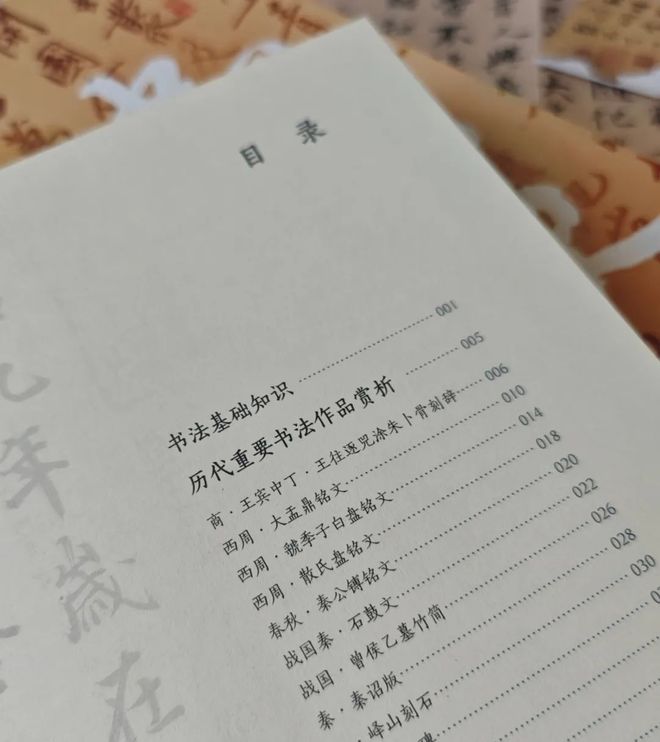 目 录
书法基础知识 001
历代重要书法作品赏析 005
商·王宾中丁·王往逐兕涂朱卜骨刻辞 006
西周·大盂鼎铭文 010
西周·虢季子白盘铭文 014
西周·散氏盘铭文 018
春秋·秦公镈铭文 020
战国秦·石鼓文 022
战国·曾侯乙墓竹简 026
秦·秦诏版 028
·峄山刻石 030
九年歲在